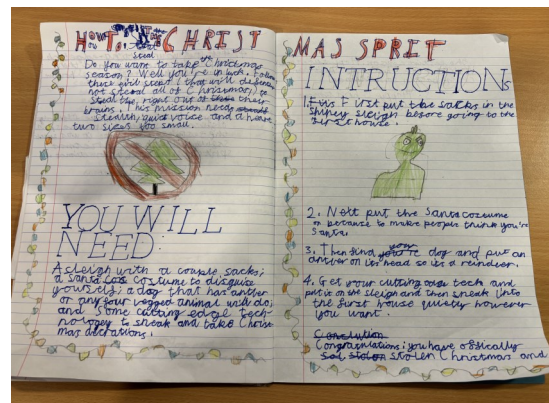 How To Steal CHRIST
Do you want to take over Christmas
season? Well you're in luck. Follow
these steps that will
not steal all of Christmas,
steal the right out of their
brains. This mission needs
stealth, quiet voice and a heart
two sizes too small.
YOU WILL
NEED:
A sleigh with a couple sacks;
a santa costume to disguise
yourself; a dog that has antler
or any four legged animal will do;
and some cutting edge tech-
nology to sneak and take Christ-
mas decrations.
MAS SPRIT
INTRUCTIONs
1. First put the sacks in the
shiney sleigh before going to the
first house.
2. Next put the Santa costume
on because to make people think you're
Santa.
3. Then find your dog and put an
antler on it's head so its a reindeer.
4. Get your cutting edge tech and
put it on the sleigh and then sneak into
the first house quietly however
you want.
Conclution
Congratulations; you have offically
stolen Christmas and